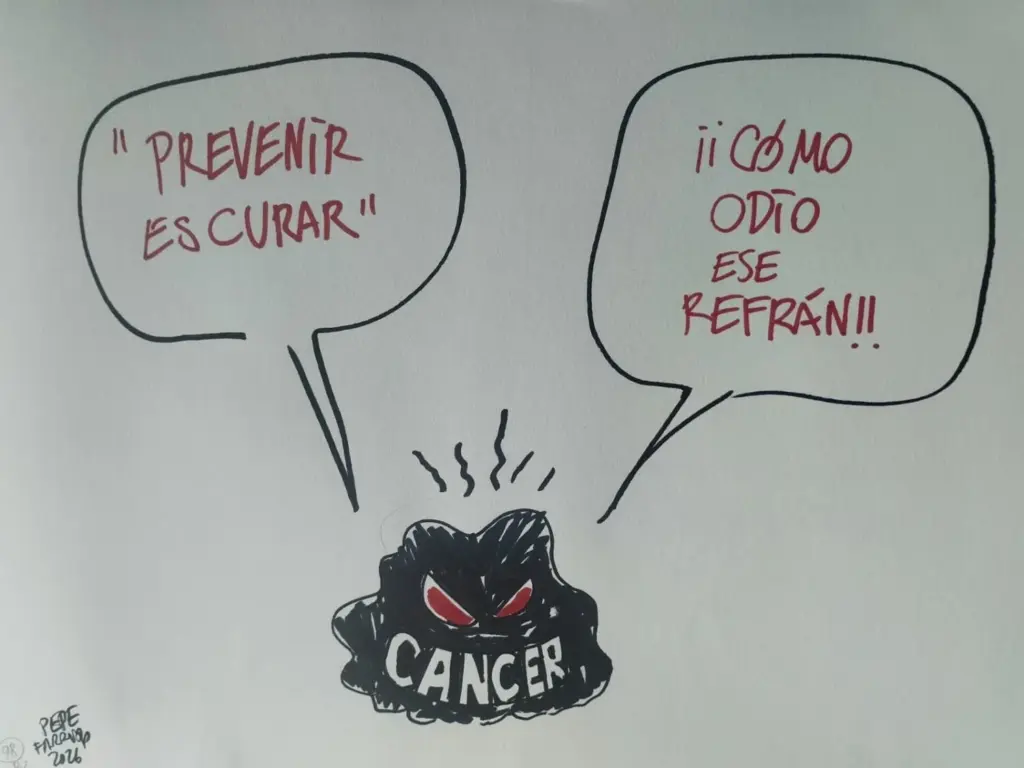 "PREVENIR
ES CURAR"
¡¡CÓMO
ODIO
ESE
REFRÁN!!
CANCER
PEPE
2026
98